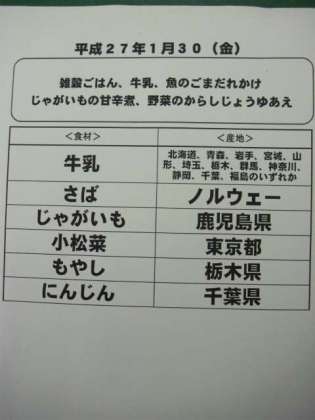 平成27年1月30(金)
雑穀ごはん、牛乳、魚のごまだれかけ
じゃがいもの甘辛煮、野菜のからしじょうゆあえ
<食材> <産地>
牛乳 北海道、青森、岩手、宮城、山
形、埼玉、栃木、群馬、神奈川、
静岡、千葉、福島のいずれか
さば ノルウェー
じゃがいも 鹿児島県
小松菜 東京都
もやし 栃木県
にんじん 千葉県